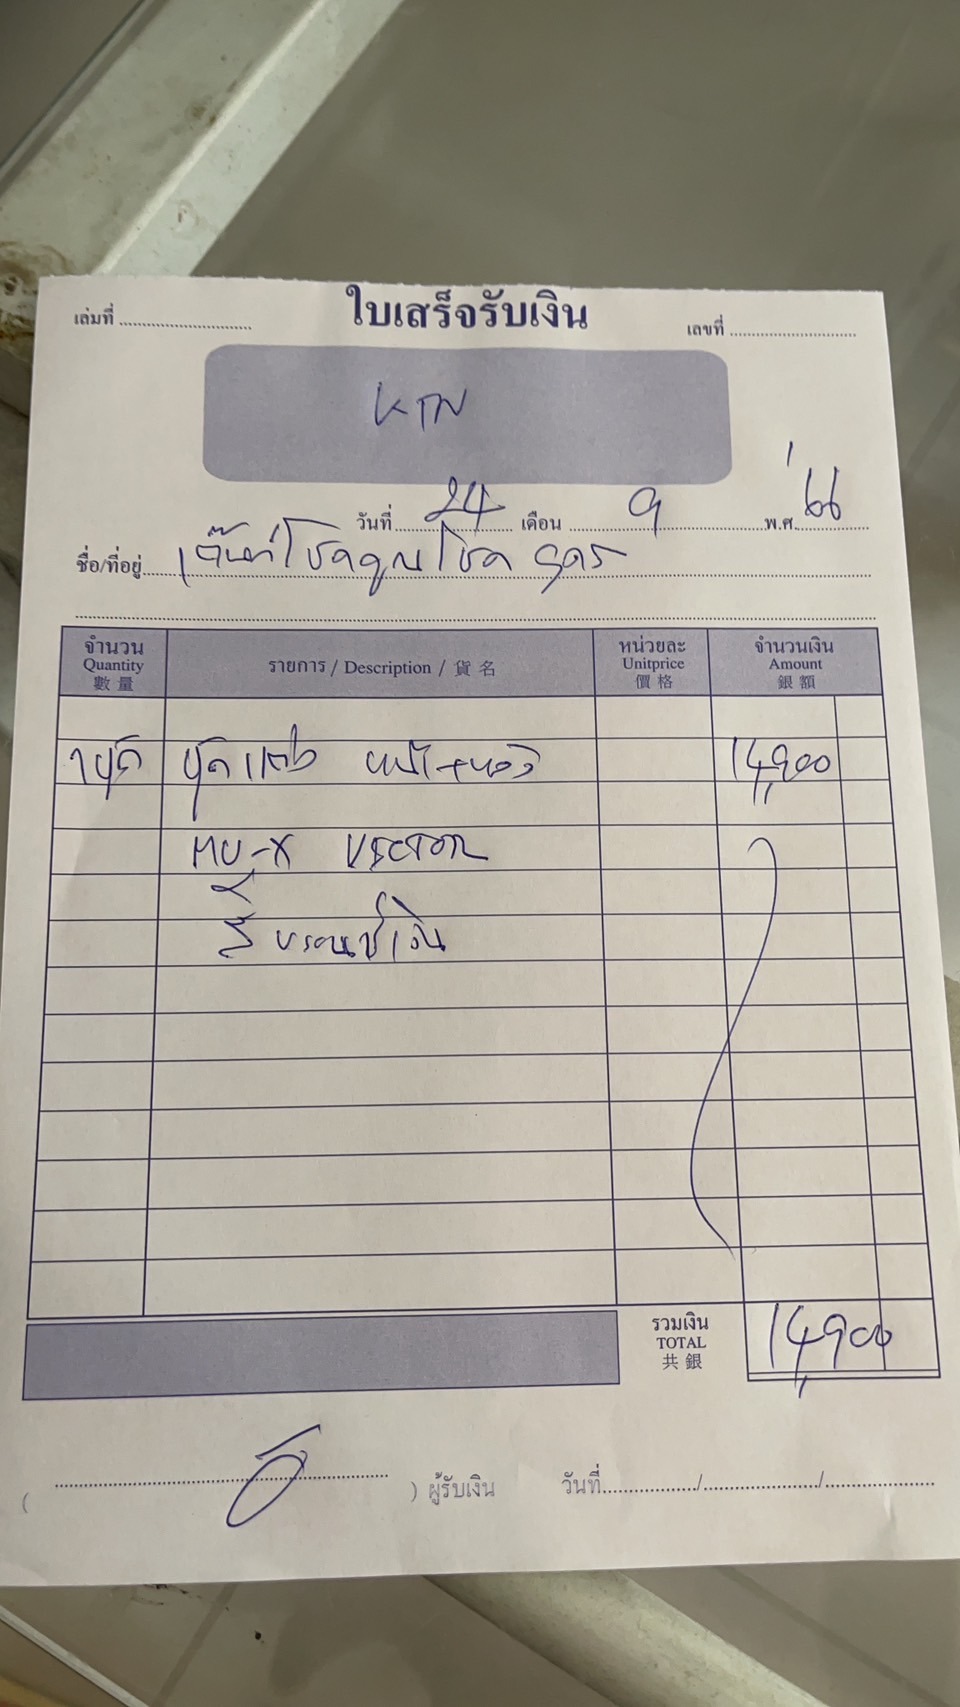 ใบเสร็จรับเงิน
เล่มที่ เลขที่
KTN
วันที่ 24 เดือน 9 พ.ศ. '66
ชื่อ/ที่อยู่ เต๊นท์โชคคูณโชค
จำนวน รายการ / Description / 貨 名 หน่วยละ จำนวนเงิน
Quantity Unitprice Amount
數 量 價 格 銀 額
1 ชุด ชุดแต่ง หน้า+หลัง 14,900
MU-X VECTOR
สี บรอนซ์เงิน
รวมเงิน
TOTAL 14,900
共 銀
( ) ผู้รับเงิน วันที่ / /